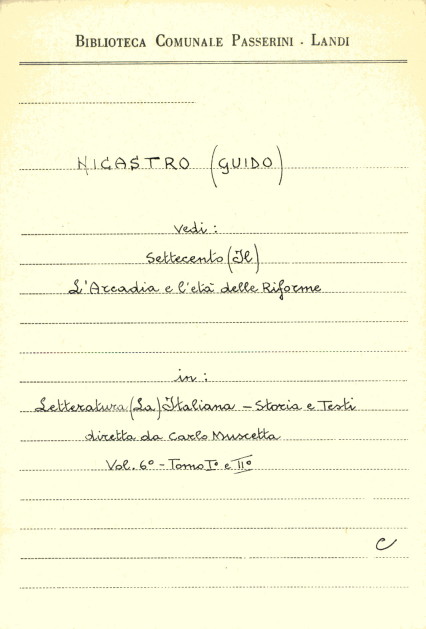 BIBLIOTECA COMUNALE PASSERINI - LANDI
NIGASTRO (GUIDO)
vedi:
Settecento (Il)
L'Arcadia e l'età delle Riforme
in:
Letteratura (La) Italiana - Storia e Testi
diretta da Carlo Muscetta
Vol. 6° - Tomo I° e II°
C